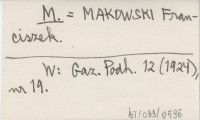 M. = MAKOWSKI Fran-
ciszek.
W: Gaz. Podh. 12 (1924),
nr 19.
67/088/0596